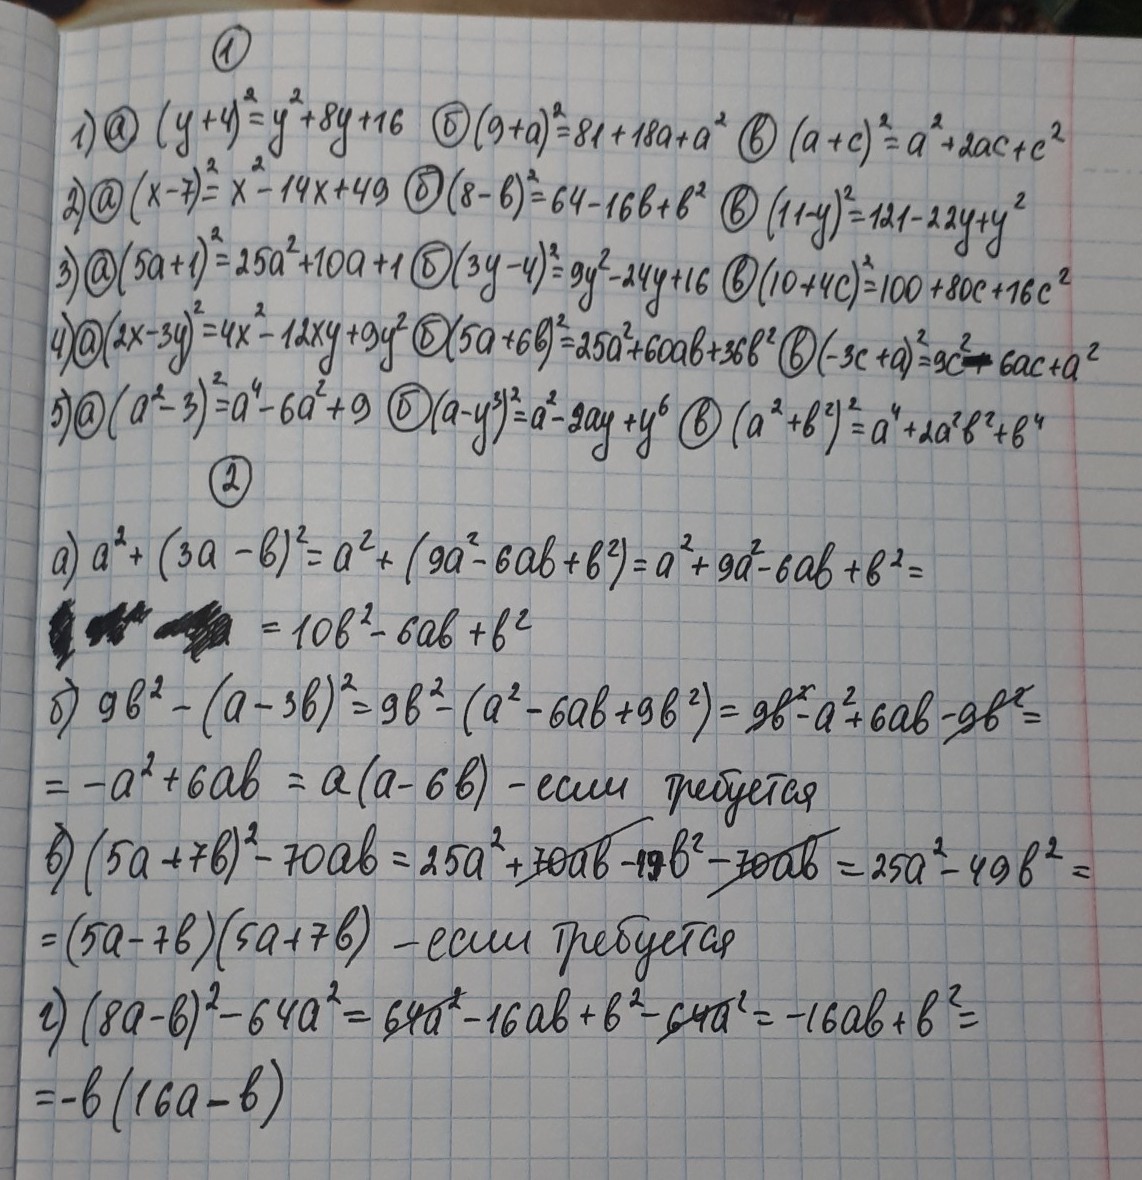 ①
1) ⓐ (y+4)²=y²+8y+16 ⓑ (9+a)²=81+18a+a² ⓒ (a+c)²=a²+2ac+c²
2) ⓐ (x-7)²=x²-14x+49 ⓑ (8-b)²=64-16b+b² ⓒ (11-y)²=121-22y+y²
3) ⓐ (5a+1)²=25a²+10a+1 ⓑ (3y-4)²=9y²-24y+16 ⓒ (10+4c)²=100+80c+16c²
4) ⓐ (2x-3y)²=4x²-12xy+9y² ⓑ (5a+6b)²=25a²+60ab+36b² ⓒ (-3c+a)²=9c²-6ac+a²
5) ⓐ (a²-3)²=a⁴-6a²+9 ⓑ (a-y³)²=a²-2ay+y⁶ ⓒ (a²+b²)²=a⁴+2a²b²+b⁴
②
а) a²+(3a-b)²=a²+(9a²-6ab+b²)=a²+9a²-6ab+b²=
=10b²-6ab+b²
б) 9b²-(a-3b)²=9b²-(a²-6ab+9b²)=9b²-a²+6ab-9b²=
=-a²+6ab=a(a-6b) - если требуется
в) (5a+7b)²-70ab=25a²+70ab-49b²-70ab=25a²-49b²=
=(5a-7b)(5a+7b) - если требуется
г) (8a-b)²-64a²=64a²-16ab+b²-64a²=-16ab+b²=
=-b(16a-b)